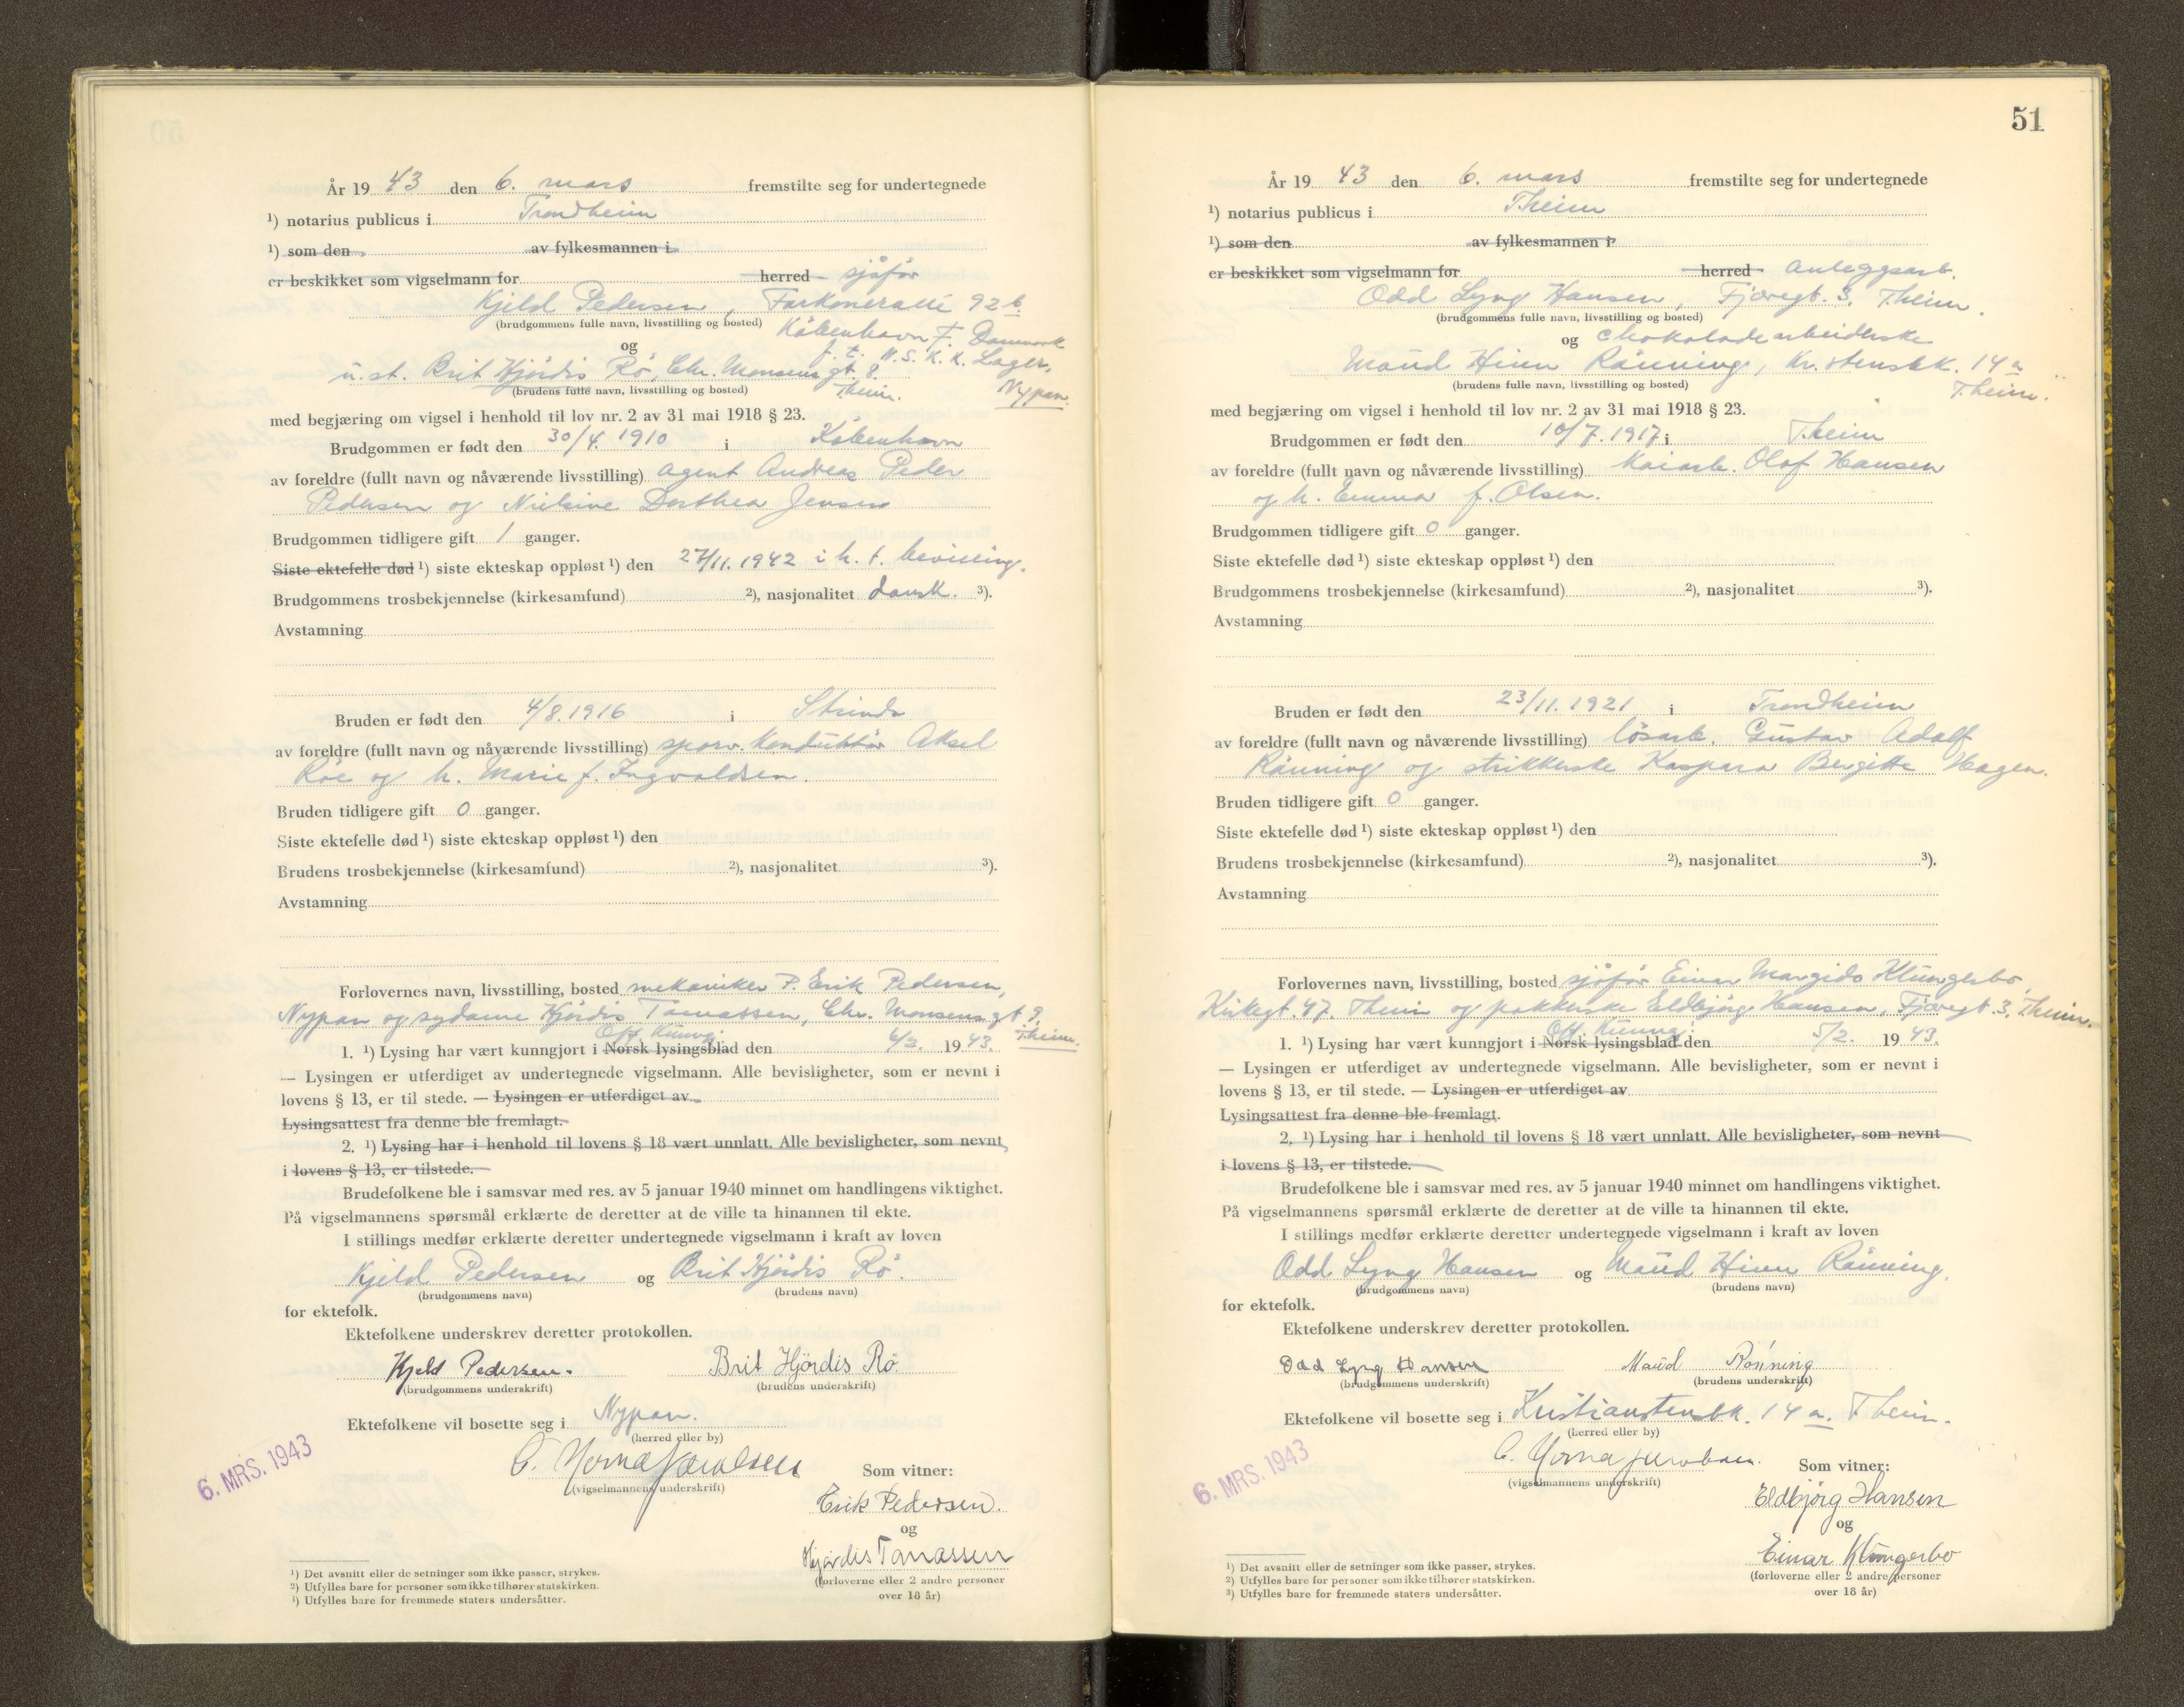 År 19 43 den 6. mars fremstilte seg for undertegnede
¹) notarius publicus i Trondheim
¹) som den av fylkesmannen i
er beskikket som vigselmann for herred sjåfør
Kjeld Pedersen, Farkoneralle 92 b.
(brudgommens fulle navn, livsstilling og bosted) København F. Danmark
og f. t. N.S.K.K. Lager,
u. st. Brit Hjördis Rö, Chr. Monsens gt. 8. Nypan.
(brudens fulle navn, livsstilling og bosted) Theim.
med begjæring om vigsel i henhold til lov nr. 2 av 31 mai 1918 § 23.
Brudgommen er født den 30/4. 1910 i København
av foreldre (fullt navn og nåværende livsstilling) agent Andreas Peder
Pedersen og Nielsine Dorthea Jensen
Brudgommen tidligere gift 1 ganger.
Siste ektefelle død ¹) siste ekteskap oppløst ¹) den 27/11. 1942 i h. t. bevilling.
Brudgommens trosbekjennelse (kirkesamfund) ²), nasjonalitet dansk. ³).
Avstamning
Bruden er født den 4/8. 1916 i Strinda
av foreldre (fullt navn og nåværende livsstilling) sporv. konduktør Aksel
Röe og h. Marie f. Ingvaldsen.
Bruden tidligere gift 0 ganger.
Siste ektefelle død ¹) siste ekteskap oppløst ¹) den
Brudens trosbekjennelse (kirkesamfund) ²), nasjonalitet ³).
Avstamning
Forlovernes navn, livsstilling, bosted mekaniker P. Erik Pedersen,
Nypan og sydame Hjördis Tomassen, Chr. Monsens gt
Off. Kunngj. Theim.
1. ¹) Lysing har vært kunngjort i Norsk lysingsblad den 19 43.
— Lysingen er utferdiget av undertegnede vigselmann. Alle bevisligheter, som er nevnt i
lovens § 13, er til stede. — Lysingen er utferdiget av
Lysingsattest fra denne ble fremlagt.
2. ¹) Lysing har i henhold til lovens § 18 vært unnlatt. Alle bevisligheter, som nevnt
i lovens § 13, er tilstede.
Brudefolkene ble i samsvar med res. av 5 januar 1940 minnet om handlingens viktighet.
På vigselmannens spørsmål erklærte de deretter at de ville ta hinannen til ekte.
I stillings medfør erklærte deretter undertegnede vigselmann i kraft av loven
Kjeld Pedersen og Brit Hjördis Rö.
(brudgommens navn) (brudens navn)
for ektefolk.
Ektefolkene underskrev deretter protokollen.
Kjeld Pedersen. Brit Hjördis Rö.
(brudgommens underskrift) (brudens underskrift)
Ektefolkene vil bosette seg i Nypan.
(herred eller by)
6. MRS. 1943
(vigselmannens underskrift) Som vitner:
Erik Pedersen.
og
Hjördis Tomassen
(forloverne eller 2 andre personer
over 18 år)
¹) Det avsnitt eller de setninger som ikke passer, strykes.
²) Utfylles bare for personer som ikke tilhører statskirken.
³) Utfylles bare for fremmede staters undersåtter.
51
År 19 43 den 6. mars fremstilte seg for undertegnede
¹) notarius publicus i Theim
¹) som den av fylkesmannen i
er beskikket som vigselmann for herred Anleggsarb.
Odd Lyng Hansen, Fjæregt. 3. Theim.
(brudgommens fulle navn, livsstilling og bosted)
og chokoladearbeiderske
Maud Hinn Rönning, Kr. stensbk. 14 a
(brudens fulle navn, livsstilling og bosted) Theim.
med begjæring om vigsel i henhold til lov nr. 2 av 31 mai 1918 § 23.
Brudgommen er født den 10/7. 1917 i Theim
av foreldre (fullt navn og nåværende livsstilling) Kaiarb. Olaf Hansen
og h. Emma f. Olsen.
Brudgommen tidligere gift 0 ganger.
Siste ektefelle død ¹) siste ekteskap oppløst ¹) den
Brudgommens trosbekjennelse (kirkesamfund) ²), nasjonalitet ³).
Avstamning
Bruden er født den 23/11. 1921 i Trondheim
av foreldre (fullt navn og nåværende livsstilling) lösarb. Gustav Adolf
Rönning og strikkerske Kaspara Bergitte Hagen.
Bruden tidligere gift 0 ganger.
Siste ektefelle død ¹) siste ekteskap oppløst ¹) den
Brudens trosbekjennelse (kirkesamfund) ²), nasjonalitet ³).
Avstamning
Forlovernes navn, livsstilling, bosted sjåfør Einar Margido Klungerbo,
Kirkegt. 47. Theim og pakkerske Eldbjörg Hansen, Fjæregt. 3. Theim.
Off. Kunngj.
1. ¹) Lysing har vært kunngjort i Norsk lysingsblad den 5/2. 19 43.
— Lysingen er utferdiget av undertegnede vigselmann. Alle bevisligheter, som er nevnt i
lovens § 13, er til stede. — Lysingen er utferdiget av
Lysingsattest fra denne ble fremlagt.
2. ¹) Lysing har i henhold til lovens § 18 vært unnlatt. Alle bevisligheter, som nevnt
i lovens § 13, er tilstede.
Brudefolkene ble i samsvar med res. av 5 januar 1940 minnet om handlingens viktighet.
På vigselmannens spørsmål erklærte de deretter at de ville ta hinannen til ekte.
I stillings medfør erklærte deretter undertegnede vigselmann i kraft av loven
Odd Lyng Hansen og Maud Hinn Rönning.
(brudgommens navn) (brudens navn)
for ektefolk.
Ektefolkene underskrev deretter protokollen.
Odd Lyng Hansen Maud Rönning
(brudgommens underskrift) (brudens underskrift)
Ektefolkene vil bosette seg i Kristianstensbk. 14 a. Theim.
(herred eller by)
6. MRS. 1943
(vigselmannens underskrift) Som vitner:
Eldbjörg Hansen
og
Einar Klungerbo
(forloverne eller 2 andre personer
over 18 år)
¹) Det avsnitt eller de setninger som ikke passer, strykes.
²) Utfylles bare for personer som ikke tilhører statskirken.
³) Utfylles bare for fremmede staters undersåtter.